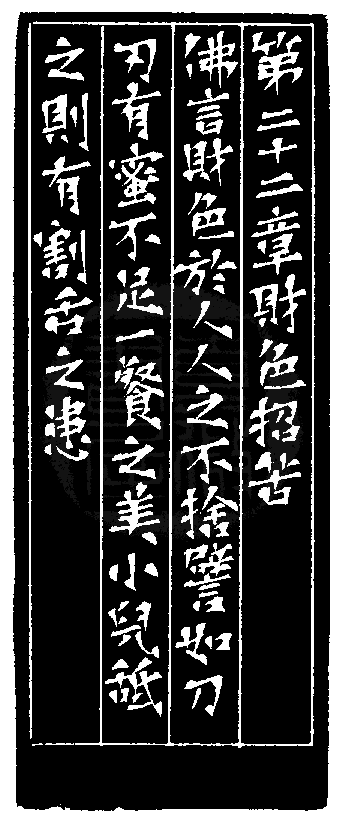 第二十二章財色招苦
佛言財色於人人之不捨譬如刀
刃有蜜不足一餐之美小兒舐
之則有割舌之患